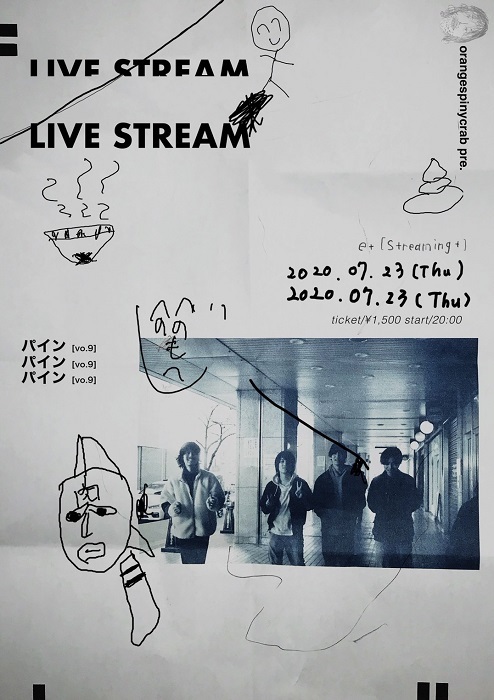 LIVE STREAM
LIVE STREAM
orangespinycrab pre.
e+ [Streaming+]
2020.07.23 (Thu)
2020.07.23 (Thu)
ticket/¥1,500 start/20:00
パイン [vo.9]
パイン [vo.9]
パイン [vo.9]
へへ
のの
も
へ